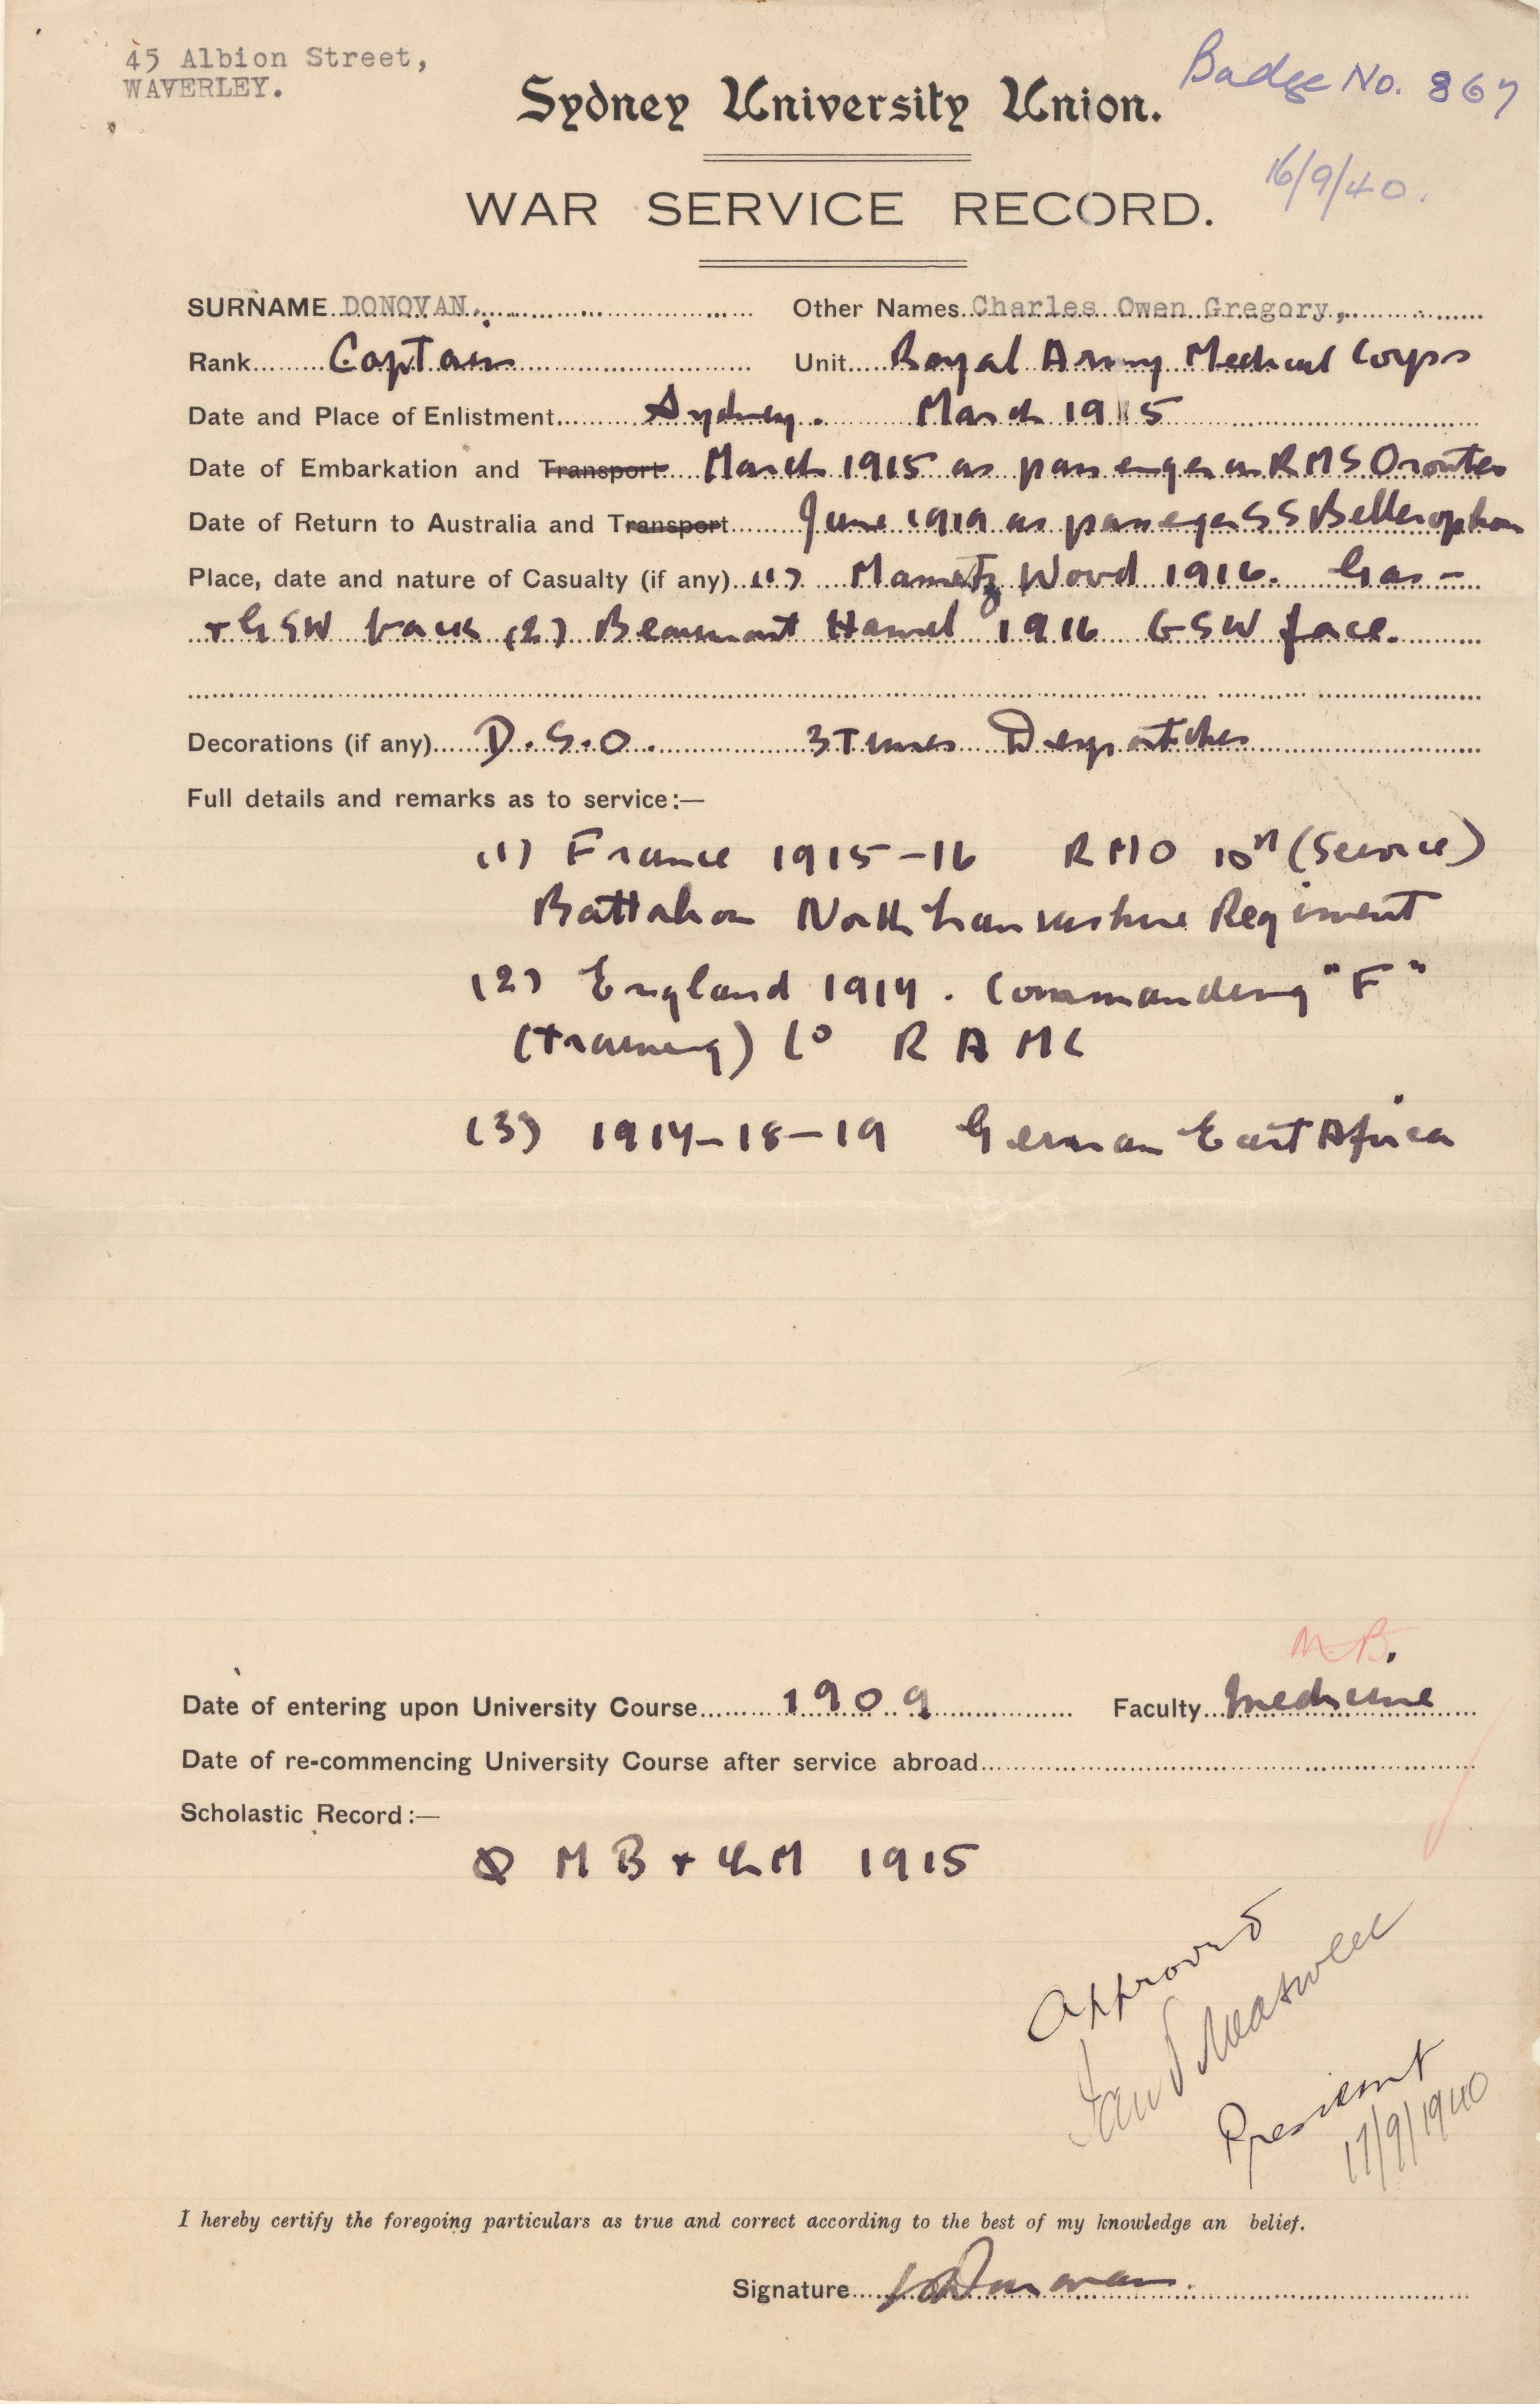 45 Albion Street,
WAVERLEY.
Badge No. 867
Sydney University Union.
16/9/40.
WAR SERVICE RECORD.
SURNAME DONOVAN. Other Names Charles Owen Gregory,
Rank Captain Unit Royal Army Medical Corps
Date and Place of Enlistment Sydney. March 1915
Date of Embarkation and Transport March 1915 as passenger on RMS Orontes
Date of Return to Australia and Transport June 1919 as passenger SS Bellerophon
Place, date and nature of Casualty (if any) (1) Mametz Wood 1916. Gas -
+ GSW back (2) Beaumont Hamel 1916 GSW face.
Decorations (if any) D.S.O. 3 Times Despatches
Full details and remarks as to service:—
(1) France 1915-16 RMO 10th (Service)
Battalion North Lancashire Regiment
(2) England 1917. Commanding "F"
(training) Co RAMC
(3) 1917-18-19 German East Africa
M.B.
Date of entering upon University Course 1909 Faculty Medicine
Date of re-commencing University Course after service abroad
Scholastic Record:—
MB + ChM 1915
Approved
President
17/9/1940
I hereby certify the foregoing particulars as true and correct according to the best of my knowledge an belief.
Signature Donovan.